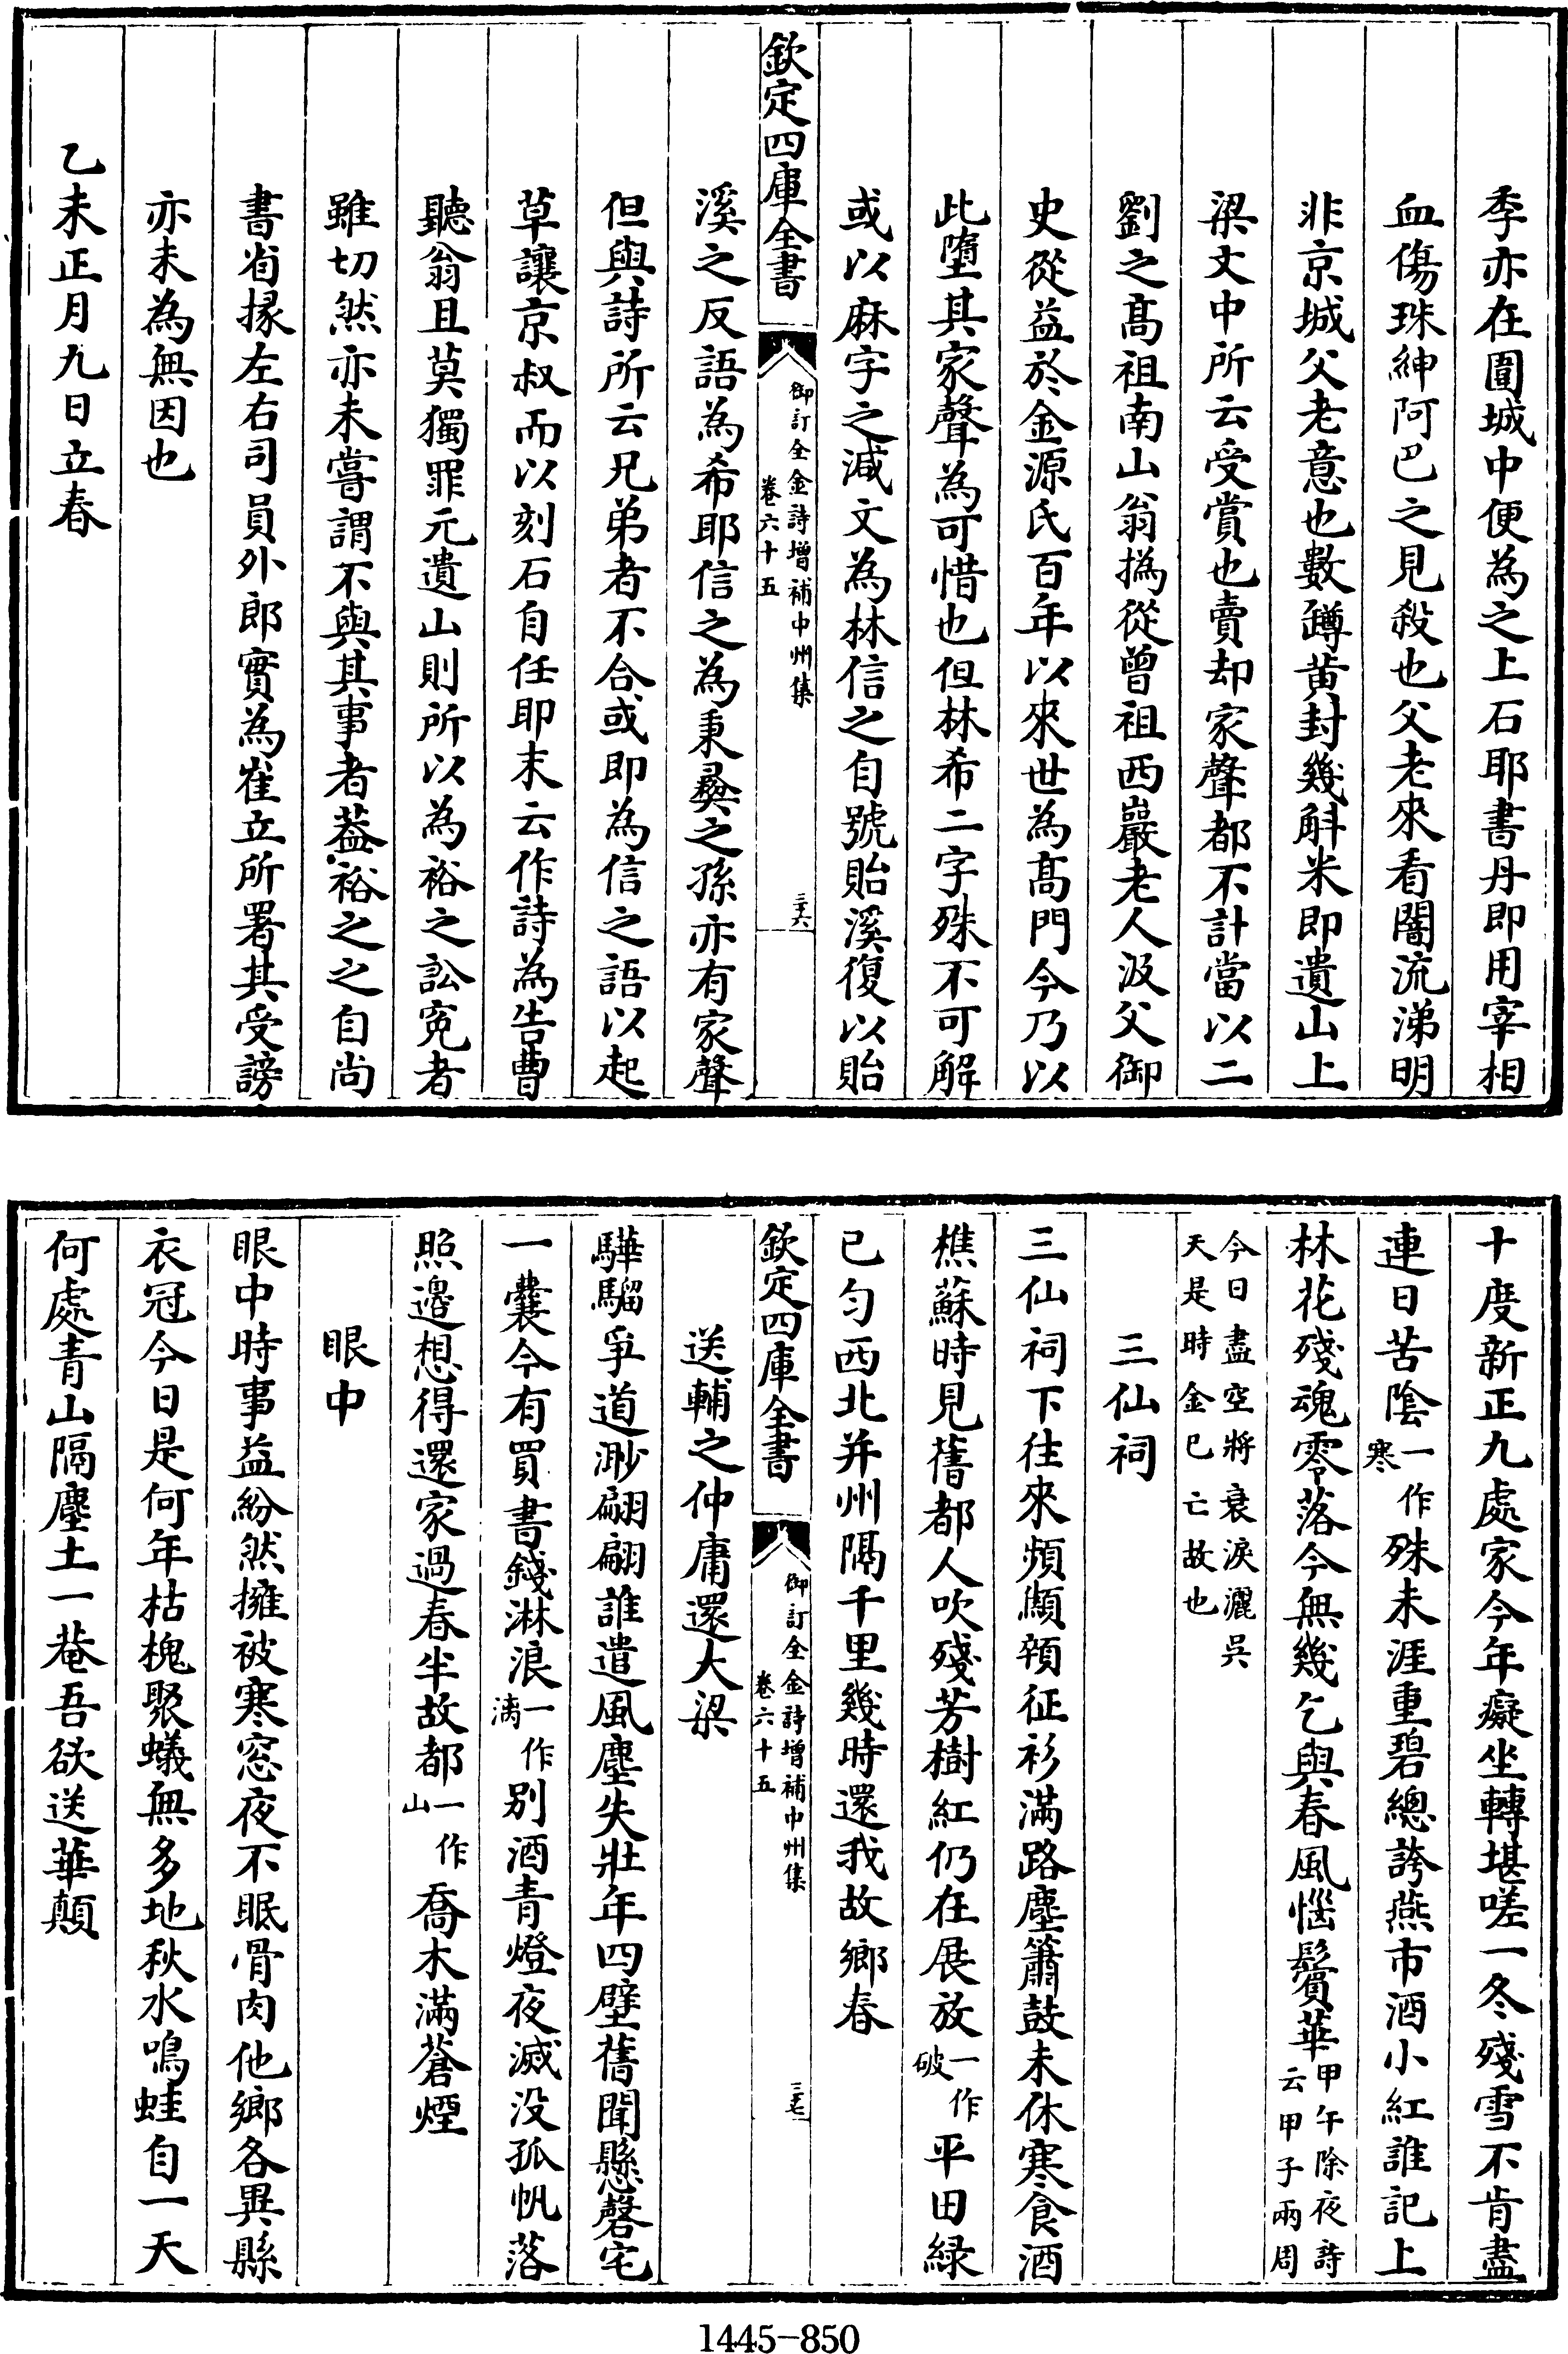 季亦在圍城中便為之上石耶書丹即用宰相
血傷珠紳阿巴之見殺也父老來看闇流涕明
非京城父老意也數蹲黄封幾斛米即遺山上
梁文中所云受賞也賣却家聲都不計當以二
劉之髙祖南山翁撝從曾祖西巖老人汲父御
史從益於金源氏百年以來世為髙門今乃以
此墮其家聲為可惜也但林希二字殊不可解
或以麻字之減文為林信之自號貽溪復以貽
欽定四庫全書
御訂全金詩增補中州集
卷六十五
三六
溪之反語為希耶信之為秉彝之孫亦有家聲
但與詩所云兄弟者不合或即為信之語以起
草讓京叔而以刻石自任耶末云作詩為告曹
聽翁且莫獨罪元遺山則所以為裕之訟寃者
雖切然亦未嘗謂不與其事者葢裕之之自尚
書省掾左右司員外郎實為崔立所署其受謗
亦未為無因也
乙未正月九日立春
十度新正九處家今年癡坐轉堪嗟一冬殘雪不肯盡
連日苦陰一作寒殊未涯重碧總誇燕市酒小紅誰記上
林花殘魂零落今無幾乞與春風惱鬢華甲午除夜詩云甲子兩周
今日盡空將衰淚灑吳天是時金已亡故也
三仙祠
三仙祠下往來頻顦顇征衫滿路塵簫鼓未休寒食酒
樵蘇時見舊都人吹殘芳樹紅仍在展放一作破平田緑
已匀西北并州隔千里幾時還我故鄉春
欽定四庫全書
御訂全金詩增補中州集
卷六十五
三七
送輔之仲庸還大梁
驊騮爭道渺翩翩誰遣風塵失壯年四壁舊聞縣磬宅
一囊今有買書錢淋浪一作漓别酒青燈夜滅没孤帆落
照邉想得還家過春半故都一作山喬木滿蒼煙
眼中
眼中時事益紛然擁被寒窓夜不眠骨肉他鄉各異縣
衣冠今日是何年枯槐聚蟻無多地秋水鳴蛙自一天
何處青山隔塵土一菴吾欲送華顛
1445-850